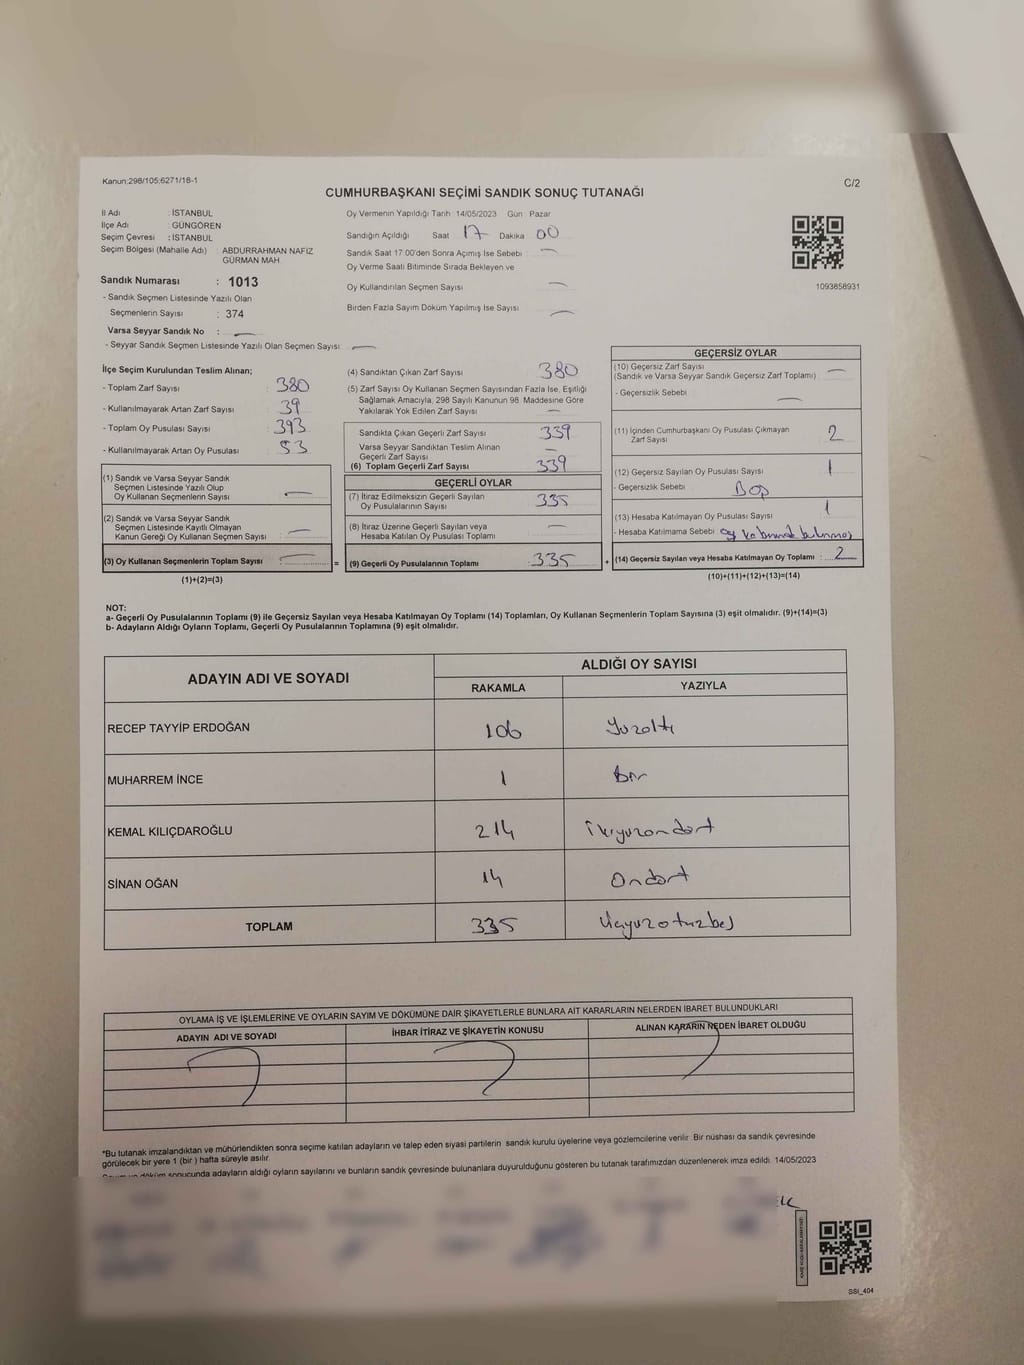 Kanun:298/105;6271/18-1
C/2
CUMHURBAŞKANI SEÇİMİ SANDIK SONUÇ TUTANAĞI
İl Adı : İSTANBUL
İlçe Adı : GÜNGÖREN
Seçim Çevresi : İSTANBUL
Seçim Bölgesi (Mahalle Adı) : ABDURRAHMAN NAFİZ
GÜRMAN MAH.
Sandık Numarası : 1013
- Sandık Seçmen Listesinde Yazılı Olan
Seçmenlerin Sayısı : 374
Varsa Seyyar Sandık No :
- Seyyar Sandık Seçmen Listesinde Yazılı Olan Seçmen Sayısı :
Oy Vermenin Yapıldığı Tarih 14/05/2023 Gün Pazar
Sandığın Açıldığı Saat 17 Dakika 00
Sandık Saat 17.00'den Sonra Açılmış İse Sebebi :
Oy Verme Saati Bitiminde Sırada Bekleyen ve
Oy Kullandırılan Seçmen Sayısı
Birden Fazla Sayım Döküm Yapılmış İse Sayısı :
1093858931
İlçe Seçim Kurulundan Teslim Alınan;
- Toplam Zarf Sayısı : 380
- Kullanılmayarak Artan Zarf Sayısı : 39
- Toplam Oy Pusulası Sayısı : 393
- Kullanılmayarak Artan Oy Pusulası : 53
(1) Sandık ve Varsa Seyyar Sandık
Seçmen Listesinde Yazılı Olup
Oy Kullanan Seçmenlerin Sayısı :
(2) Sandık ve Varsa Seyyar Sandık
Seçmen Listesinde Kayıtlı Olmayan
Kanun Gereği Oy Kullanan Seçmen Sayısı :
(3) Oy Kullanan Seçmenlerin Toplam Sayısı :
(1)+(2)=(3)
(4) Sandıktan Çıkan Zarf Sayısı : 380
(5) Zarf Sayısı Oy Kullanan Seçmen Sayısından Fazla İse, Eşitliği
Sağlamak Amacıyla; 298 Sayılı Kanunun 98. Maddesine Göre
Yakılarak Yok Edilen Zarf Sayısı :
Sandıkta Çıkan Geçerli Zarf Sayısı : 339
Varsa Seyyar Sandıktan Teslim Alınan
Geçerli Zarf Sayısı :
(6) Toplam Geçerli Zarf Sayısı : 339
GEÇERLİ OYLAR
(7) İtiraz Edilmeksizin Geçerli Sayılan
Oy Pusulalarının Sayısı : 335
(8) İtiraz Üzerine Geçerli Sayılan veya
Hesaba Katılan Oy Pusulası Toplamı :
= (9) Geçerli Oy Pusulalarının Toplamı : 335
GEÇERSİZ OYLAR
(10) Geçersiz Zarf Sayısı
(Sandık ve Varsa Seyyar Sandık Geçersiz Zarf Toplamı) :
- Geçersizlik Sebebi :
(11) İçinden Cumhurbaşkanı Oy Pusulası Çıkmayan
Zarf Sayısı : 2
(12) Geçersiz Sayılan Oy Pusulası Sayısı : 1
- Geçersizlik Sebebi : Boş
(13) Hesaba Katılmayan Oy Pusulası Sayısı : 1
- Hesaba Katılmama Sebebi :
+ (14) Geçersiz Sayılan veya Hesaba Katılmayan Oy Toplamı : 2
(10)+(11)+(12)+(13)=(14)
NOT:
a- Geçerli Oy Pusulalarının Toplamı (9) ile Geçersiz Sayılan veya Hesaba Katılmayan Oy Toplamı (14) Toplamları, Oy Kullanan Seçmenlerin Toplam Sayısına (3) eşit olmalıdır. (9)+(14)=(3)
b- Adayların Aldığı Oyların Toplamı, Geçerli Oy Pusulalarının Toplamına (9) eşit olmalıdır.
ADAYIN ADI VE SOYADI ALDIĞI OY SAYISI
RAKAMLA YAZIYLA
RECEP TAYYİP ERDOĞAN 106 Yüzaltı
MUHARREM İNCE 1 Bir
KEMAL KILIÇDAROĞLU 214 İkiyüzondört
SİNAN OĞAN 14 Ondört
TOPLAM 335 Üçyüzotuzbeş
OYLAMA İŞ VE İŞLEMLERİNE VE OYLARIN SAYIM VE DÖKÜMÜNE DAİR ŞİKAYETLERLE BUNLARA AİT KARARLARIN NELERDEN İBARET BULUNDUKLARI
ADAYIN ADI VE SOYADI İHBAR İTİRAZ VE ŞİKAYETİN KONUSU ALINAN KARARIN NEDEN İBARET OLDUĞU
*Bu tutanak imzalandıktan ve mühürlendikten sonra seçime katılan adayların ve talep eden siyasi partilerin sandık kurulu üyelerine veya gözlemcilerine verilir. Bir nüshası da sandık çevresinde
görülecek bir yere 1 (bir) hafta süreyle asılır.
sonucunda adayların aldığı oyların sayılarını ve bunların sandık çevresinde bulunanlara duyurulduğunu gösteren bu tutanak tarafımızdan düzenlenerek imza edildi. 14/05/2023
SSI_404